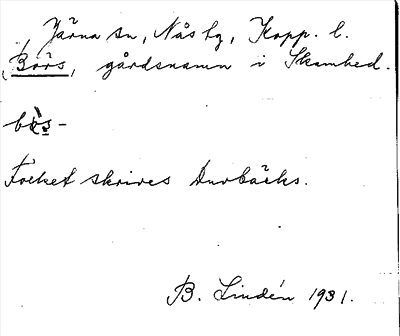 Järna sn, Nås hg, Kopp. l.
Börs, gårdsnamn i Skambed.
Folket skrives Durbäcks.
B. Lindén 1931.